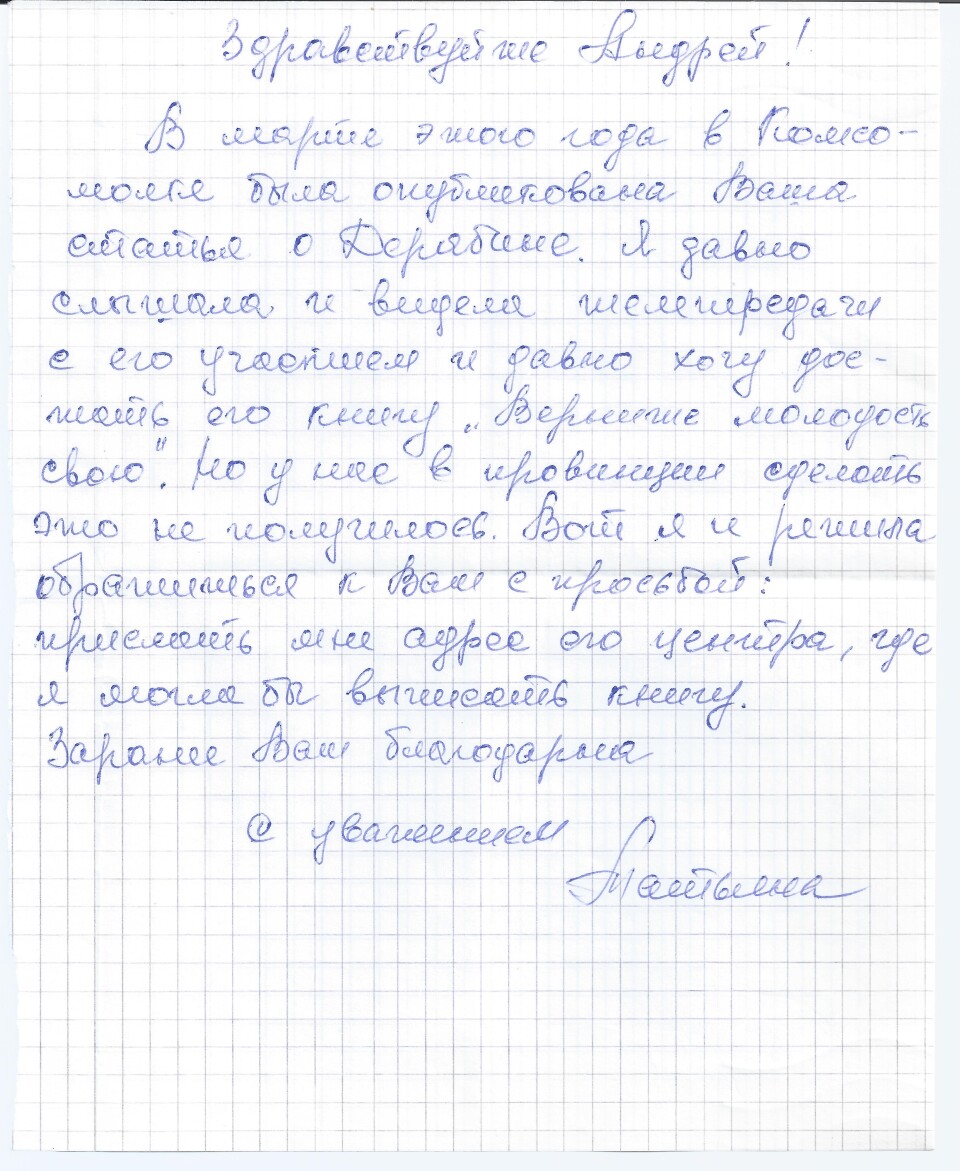 Здравствуйте Андрей!
В марте этого года в Комсо-
молке была опубликована Ваша
статья о Дерябине. Я давно
слышала и видела телепередачи
с его участием и давно хочу дос-
тать его книгу „Верните молодость
свою". Но у нас в провинции сделать
это не получилось. Вот я и решила
обратиться к Вам с просьбой:
прислать мне адрес его центра, где
я могла бы выписать книгу.
Заранее Вам благодарна
С уважением
Татьяна